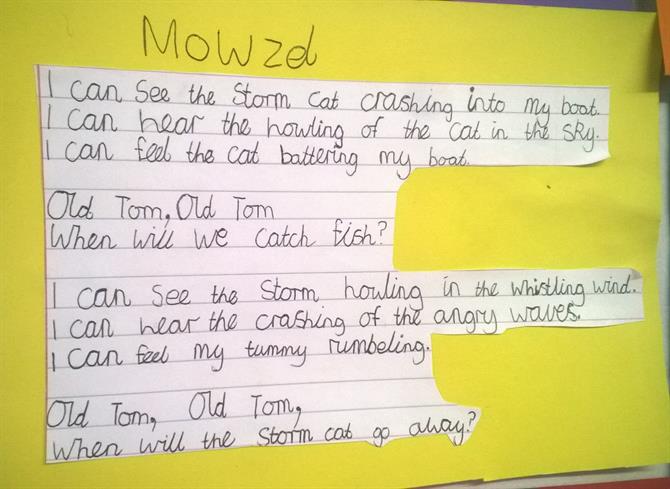 Mowzel
I can see the Storm Cat crashing into my boat.
I can hear the howling of the cat in the sky.
I can feel the cat battering my boat.
Old Tom, Old Tom
When will we catch fish?
I can see the storm howling in the whistling wind.
I can hear the crashing of the angry waves.
I can feel my tummy rumbeling.
Old Tom, Old Tom,
When will the storm cat go away?